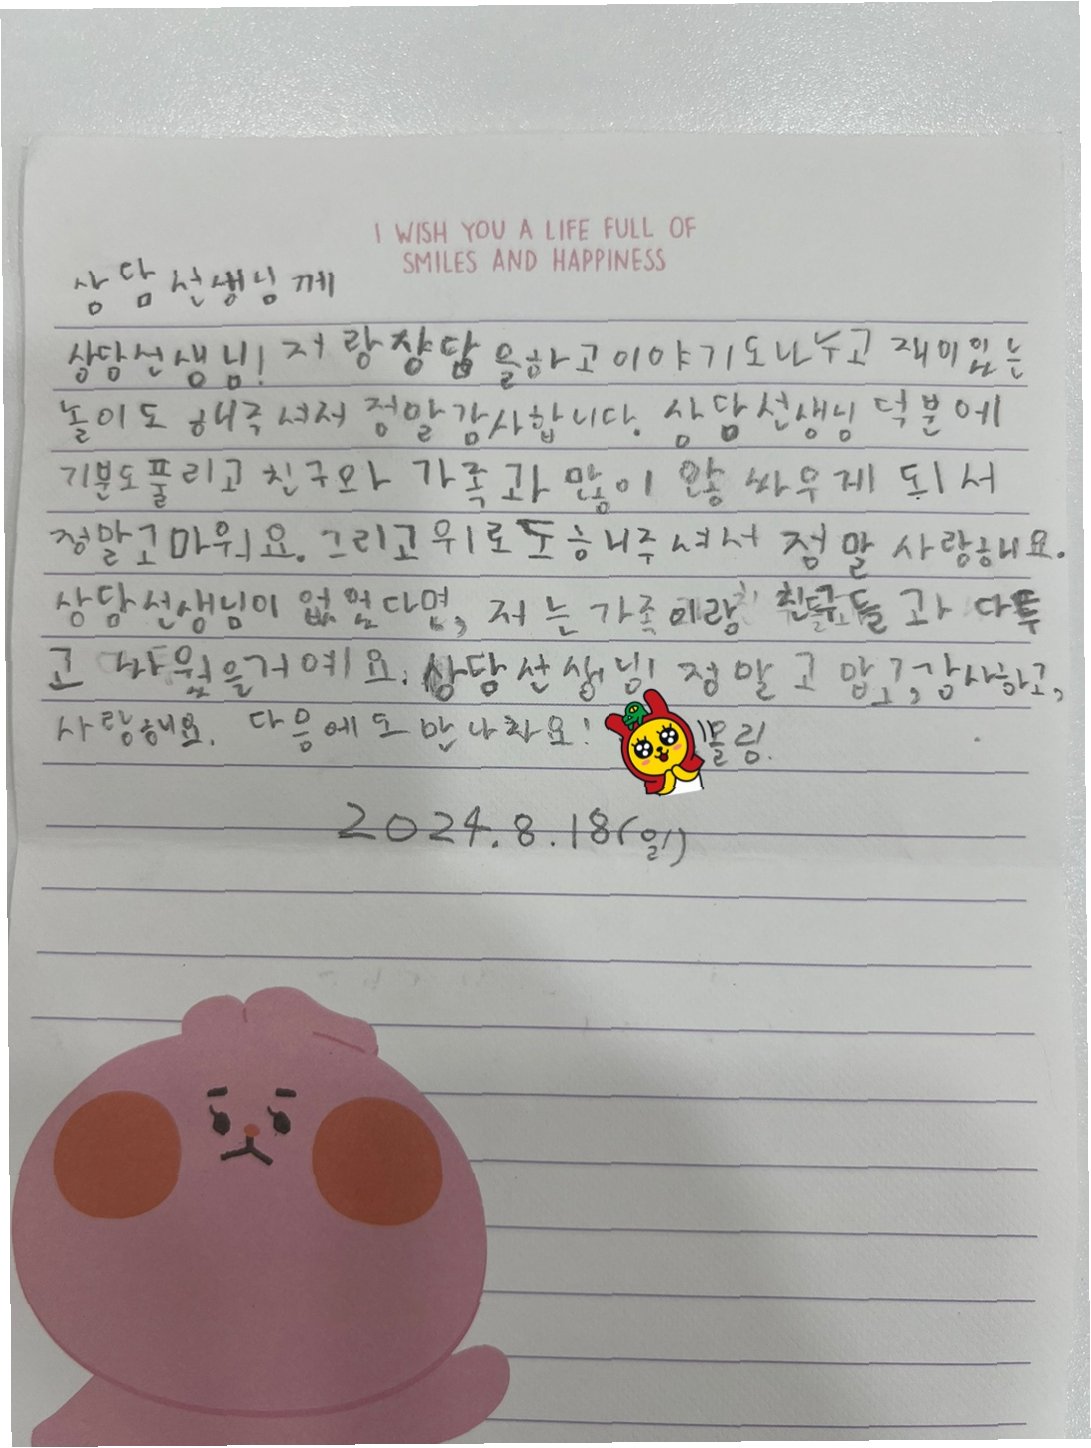 I WISH YOU A LIFE FULL OF
SMILES AND HAPPINESS
상담선생님께
상담선생님! 저랑 상담을하고이야기도나누고 재미있는
놀이도 해주셔서 정말감사합니다. 상담선생님 덕분에
기분도풀리고 친구와 가족과 많이 않 싸우게 되서
정말고마워요. 그리고위로도해주셔서 점말 사랑해요.
상담선생님이 없었다면, 저는 가족이랑 친구들과 다투
고 싸웠을거예요. 상담선생님! 정말 고맙고, 감사하고,
사랑해요. 다음에도 만나자요! 올림.
2024.8.18(일)